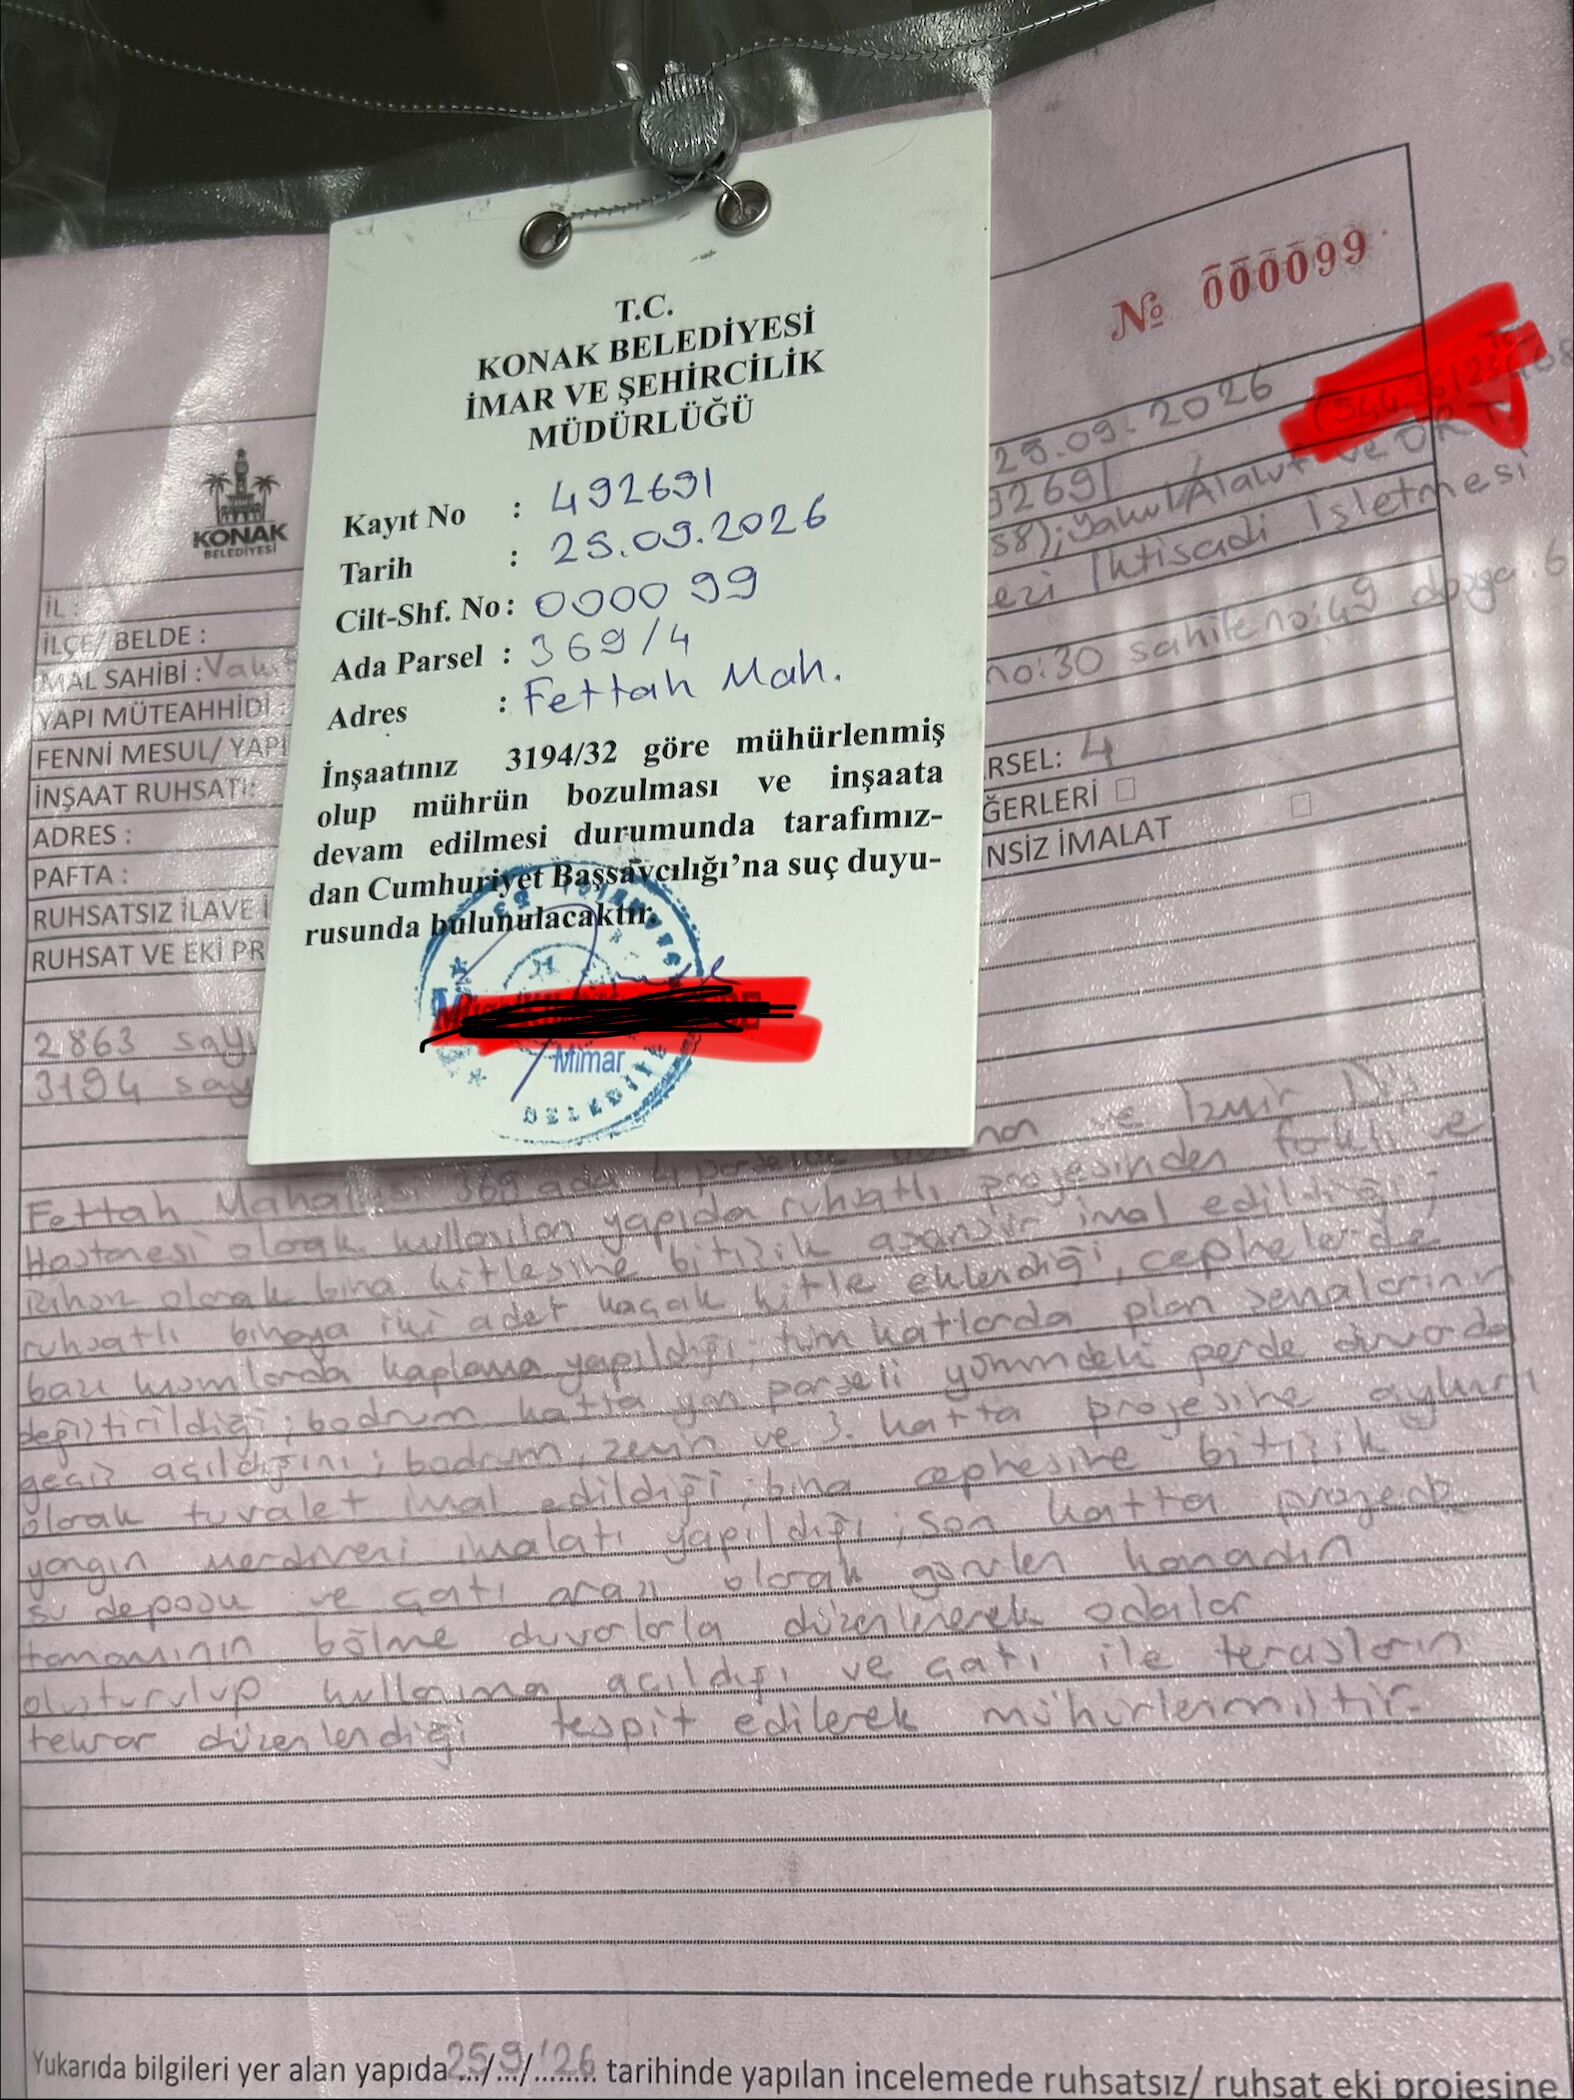 T.C.
KONAK BELEDİYESİ
İMAR VE ŞEHİRCİLİK
MÜDÜRLÜĞÜ
Kayıt No : 492691
Tarih : 25.09.2026
Cilt-Shf. No : 000099
Ada Parsel : 369/4
Adres : Fettah Mah.
İnşaatınız 3194/32 göre mühürlenmiş
olup mührün bozulması ve inşaata
devam edilmesi durumunda tarafımız-
dan Cumhuriyet Başsavcılığı’na suç duyu-
rusunda bulunulacaktır.
Mimar
№ 000099
25.09.2026
92691
58); Yakul Alalut ve
ezi İktisadi İşletmesi
no:30 sahife no:49 dosya:6
KONAK
BELEDİYESİ
İL :
İLÇE/ BELDE :
MAL SAHİBİ : Vak
YAPI MÜTEAHHİDİ :
FENNİ MESUL/ YAPI
İNŞAAT RUHSATI:
ADRES :
PAFTA :
RSEL: 4
RUHSATSIZ İLAVE İ
ĞERLERİ
RUHSAT VE EKİ PR
NSİZ İMALAT
2863 sayı
3194 say
ve İzmir Diş
Fettah Mahallesi 369 ada 4 parselde
Hastanesi olarak kullanılan yapıda ruhsatlı projesinden farklı ve
olarak bina kitlesine bitişik asansör imal edildiği;
ruhsatlı binaya iki adet kaçak kitle eklendiği, cephelerde
bazı kısımlarda kaplama yapıldığı; tüm katlarda plan şemalarının
değiştirildiği; bodrum katta yan parseli yönündeki perde duvarda
geçiş açıldığını; bodrum, zemin ve 3. katta projesine aykırı
olarak tuvalet imal edildiği; bina cephesine bitişik
yangın merdiveni imalatı yapıldığı; son katta projede
su deposu ve çatı arası olarak görülen kanadın
tamamının bölme duvarlarla düzenlenerek odalar
oluşturulup kullanıma açıldığı ve çatı ile terasların
tekrar düzenlendiği tespit edilerek mühürlenmiştir.
Yukarıda bilgileri yer alan yapıda 25/9/'26 tarihinde yapılan incelemede ruhsatsız/ ruhsat eki projesine